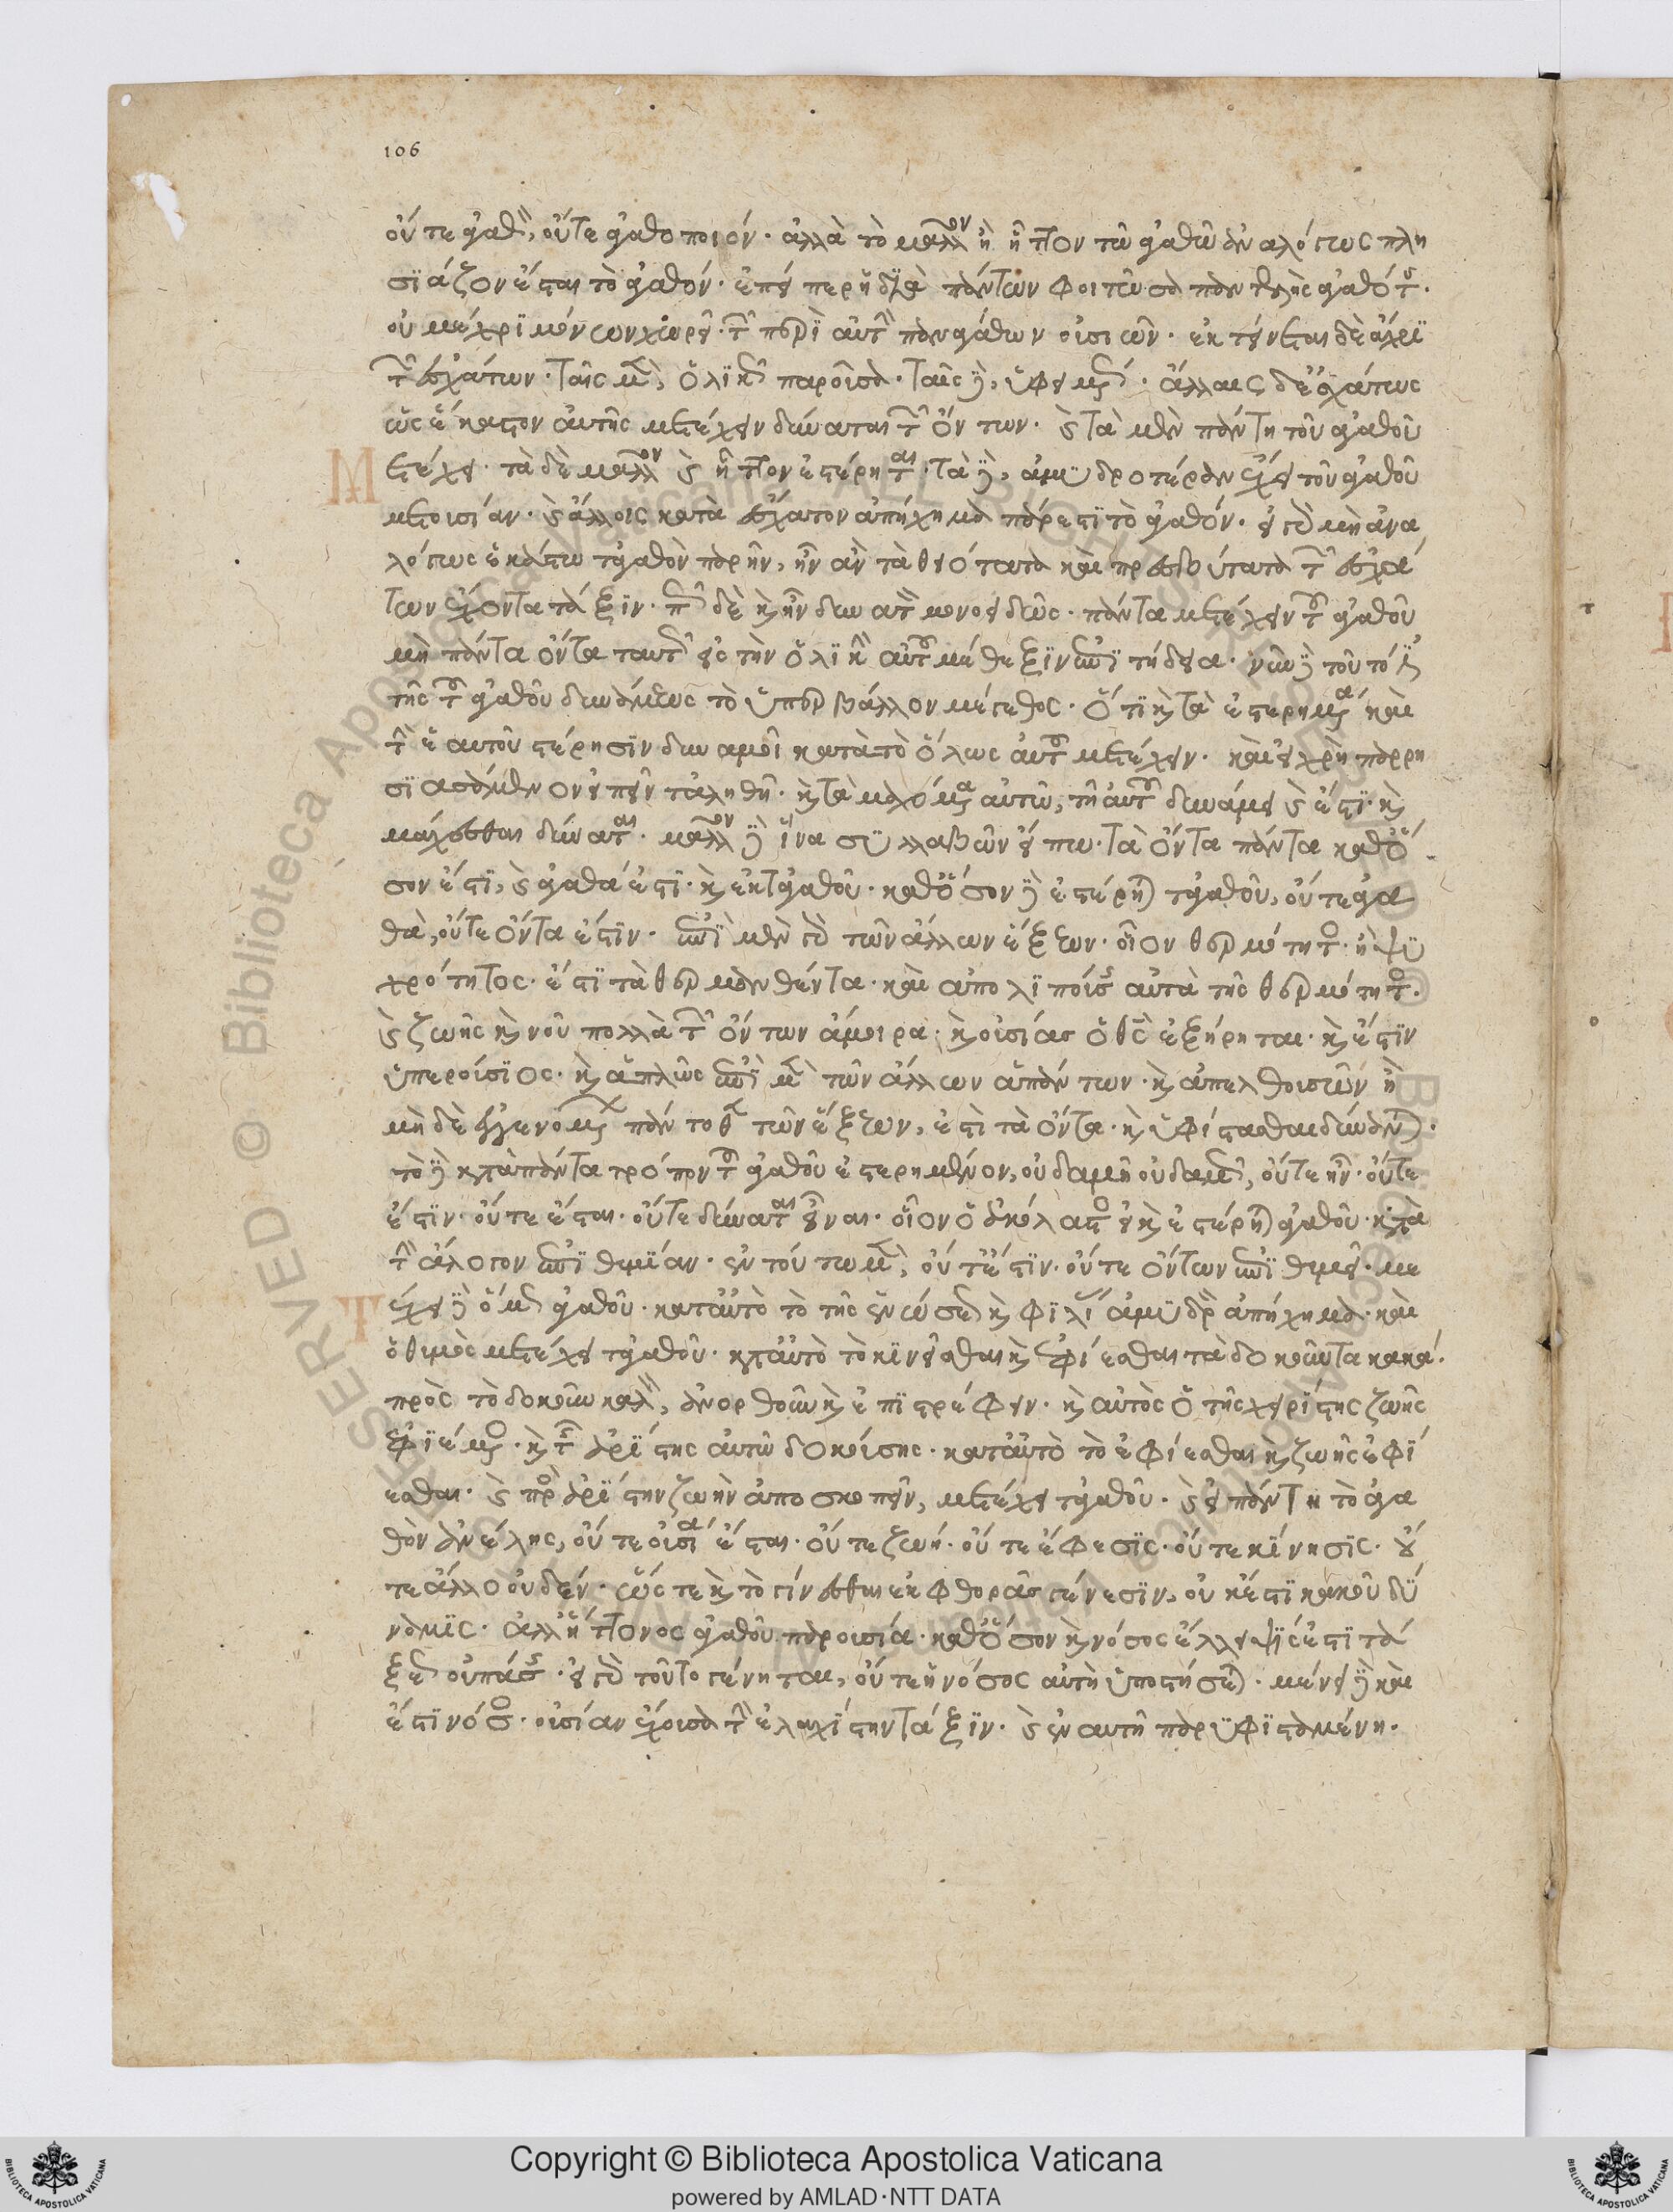 106
οὔτε ἀγαθὸν, οὔτε ἀγαθοποιόν· ἀλλὰ τὸ μᾶλλον ἢ ἧττον τῷ ἀγαθῷ ἀναλόγως πλη
σιάζον ἔσται τὸ ἀγαθόν· ἐπείπερ ἡ διὰ πάντων φοιτῶσα παντελὴς ἀγαθότης·
οὐ μέχρι μόνων χωρεῖ τῶν περὶ αὐτὴν παναγάθων οὐσιῶν· ἐκτείνεται δὲ ἄχρι
τῶν ἐσχάτων· ταῖς μὲν, ὁλικῶς παροῦσα· ταῖς δὲ, ὑφειμένως· ἄλλαις δὲ ἐσχάτως
ὡς ἕκαστον αὐτῆς μετέχειν δύναται τῶν ὄντων· καὶ τὰ μὲν πάντη τοῦ ἀγαθοῦ
μετέχει· τὰ δὲ μᾶλλον καὶ ἧττον ἐστέρηται· τὰ δὲ, ἀμυδροτέραν ἔχει τοῦ ἀγαθοῦ
μετουσίαν· καὶ ἄλλοις κατὰ ἔσχατον ἀπήχημα πάρεστι τὸ ἀγαθόν· εἰ γὰρ μὴ ἀνα
λόγως ἑκάστῳ τἀγαθὸν παρῆν, ἦν ἂν τὰ θειότατα καὶ πρεσβύτατα τὴν τῶν ἐσχά
των ἔχοντα τάξιν· πῶς δὲ καὶ ἦν δυνατὸν μονοειδῶς· πάντα μετέχειν τοῦ ἀγαθοῦ
μὴ πάντα ὄντα ταυτῶς εἰς τὴν ὁλικὴν αὐτοῦ μέθεξιν ἐπιτήδεια· νῦν δὲ τοῦτό ἐστι
τῆς τοῦ ἀγαθοῦ δυνάμεως τὸ ὑπερβάλλον μέγεθος· ὅτι καὶ τὰ ἐστερημένα καὶ
τὴν ἑαυτοῦ στέρησιν δυναμοῖ κατὰ τὸ ὅλως αὐτοῦ μετέχειν· καὶ εἰ χρὴ παρρη
σιασάμενον εἰπεῖν τἀληθῆ· καὶ τὰ μαχόμενα αὐτῷ, τῇ αὐτοῦ δυνάμει καὶ ἔστι· καὶ
μάχεσθαι δύναται· μᾶλλον δὲ ἵνα συλλαβὼν εἴπω· τὰ ὄντα πάντα καθό
σον ἔστι, καὶ ἀγαθά ἐστι· καὶ ἐκ τἀγαθοῦ· καθόσον δὲ ἐστέρηται τἀγαθοῦ, οὔτε ἀγα
θὰ, οὔτε ὄντα ἐστίν· ἐπὶ μὲν γὰρ τῶν ἄλλων ἕξεων· οἷον θερμότητος· ἢ ψυ
χρότητος· ἔστι τὰ θερμανθέντα· καὶ ἀπολιπούσης αὐτὰ τῆς θερμότητος·
καὶ ζωῆς καὶ νοῦ πολλὰ τῶν ὄντων ἄμοιρα· καὶ οὐσίας ὁ θεὸς ἐξῄρηται· καὶ ἔστιν
ὑπερούσιος· καὶ ἁπλῶς ἐπὶ μὲν τῶν ἄλλων ἁπάντων· καὶ ἀπελθουσῶν ἢ
μηδὲ ἐγγενομένης παντελῶς τῶν ἕξεων, ἔστι τὰ ὄντα· καὶ ὑφίστασθαι δύναται·
τὸ δὲ κατὰ πάντα τρόπον τοῦ ἀγαθοῦ ἐστερημένον, οὐδαμῆ οὐδαμῶς, οὔτε ἦν· οὔτε
ἔστιν· οὔτε ἔσται· οὔτε δύναται εἶναι· οἷον ὁ ἀκόλαστος εἰ καὶ ἐστέρηται ἀγαθοῦ· κατὰ
τὴν ἄλογον ἐπιθυμίαν· ἐν τούτῳ μὲν, οὔτε ἔστιν· οὔτε ὄντων ἐπιθυμεῖ· με
τέχει δὲ ὅμως ἀγαθοῦ· κατ’ αὐτὸ τὸ τῆς ἑνώσεως καὶ φιλίας ἀμυδρὸν ἀπήχημα· καὶ
ὁ θυμὸς μετέχει τἀγαθοῦ· κατ’ αὐτὸ τὸ κινεῖσθαι καὶ ἐφίεσθαι τὰ δοκοῦντα κακά·
πρὸς τὸ δοκοῦν καλὸν, ἀνορθοῦν καὶ ἐπιστρέφειν· καὶ αὐτὸς ὁ τῆς χειρίστης ζωῆς
ἐφιέμενος· καὶ τῆς ἀρίστης αὐτῷ δοκούσης· κατ’ αὐτὸ τὸ ἐφίεσθαι καὶ ζωῆς ἐφί
εσθαι· καὶ πρὸς ἀρίστην ζωὴν ἀποσκοπεῖν, μετέχει τἀγαθοῦ· καὶ εἰ πάντη τὸ ἀγα
θὸν ἀνέλῃς, οὔτε οὐσία ἔσται· οὔτε ζωή· οὔτε ἔφεσις· οὔτε κίνησις· οὔ
τε ἄλλο οὐδέν· ὥστε καὶ τὸ γίνεσθαι ἐκ φθορᾶς γένεσιν, οὐκ ἔστι κακοῦ δύ
ναμις· ἀλλ’ ἥττονος ἀγαθοῦ παρουσία· καθόσον καὶ νόσος ἔλλειψίς ἐστι τά
ξεως οὐ πάσης· εἰ γὰρ τοῦτο γένηται, οὔτε ἡ νόσος αὐτὴ ὑποστήσεται· μένει δὲ καὶ
ἔστι νόσος· οὐσίαν ἔχουσα τὴν ἐλαχίστην τάξιν· καὶ ἐν αὐτῇ παρυφισταμένη·